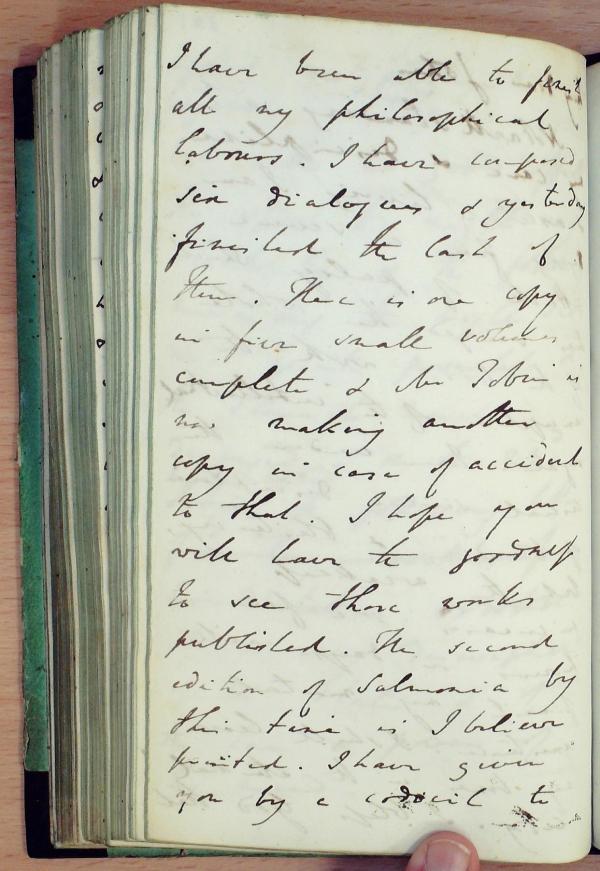 I have been able to finish
all my philosophical
labours. I have composed
six dialogues & yesterday
finished the last of
them. There is one copy
in five small volumes
complete & Mr Tobin is
now making another
copy in case of accident
to that. I hope you
will have the goodness
to see these works
published. The second
edition of Salmonia by
this time is I believe
printed. I have given
you by a codicil to